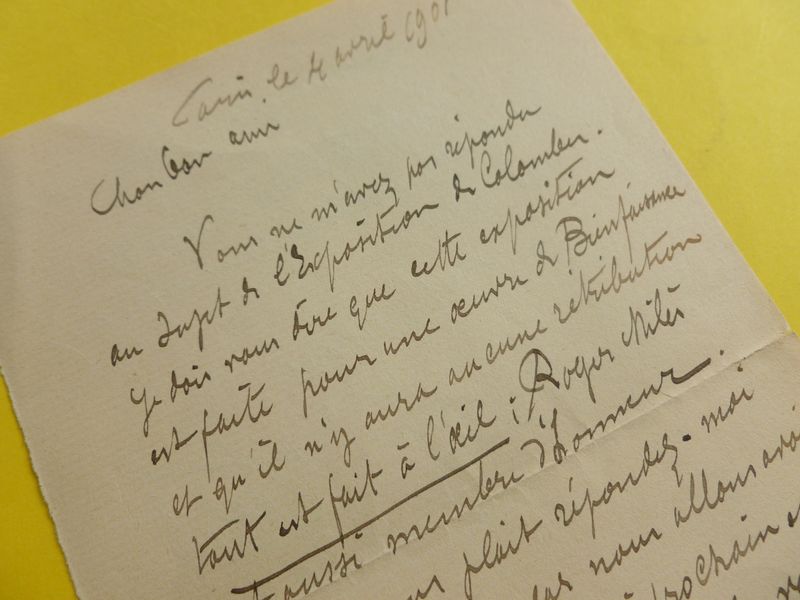 Paris, le 4 avril 1901
Mon bon ami
Vous ne m'avez pas répondu
au sujet de l'Exposition de Colombes.
Je dois vous dire que cette exposition
est faite pour une œuvre de Bienfaisance
et qu'il n'y aura aucune rétribution
tout est fait à l'œil ; Roger Milès
est aussi membre d'Honneur.
plait répondez-moi
nous allons
prochain